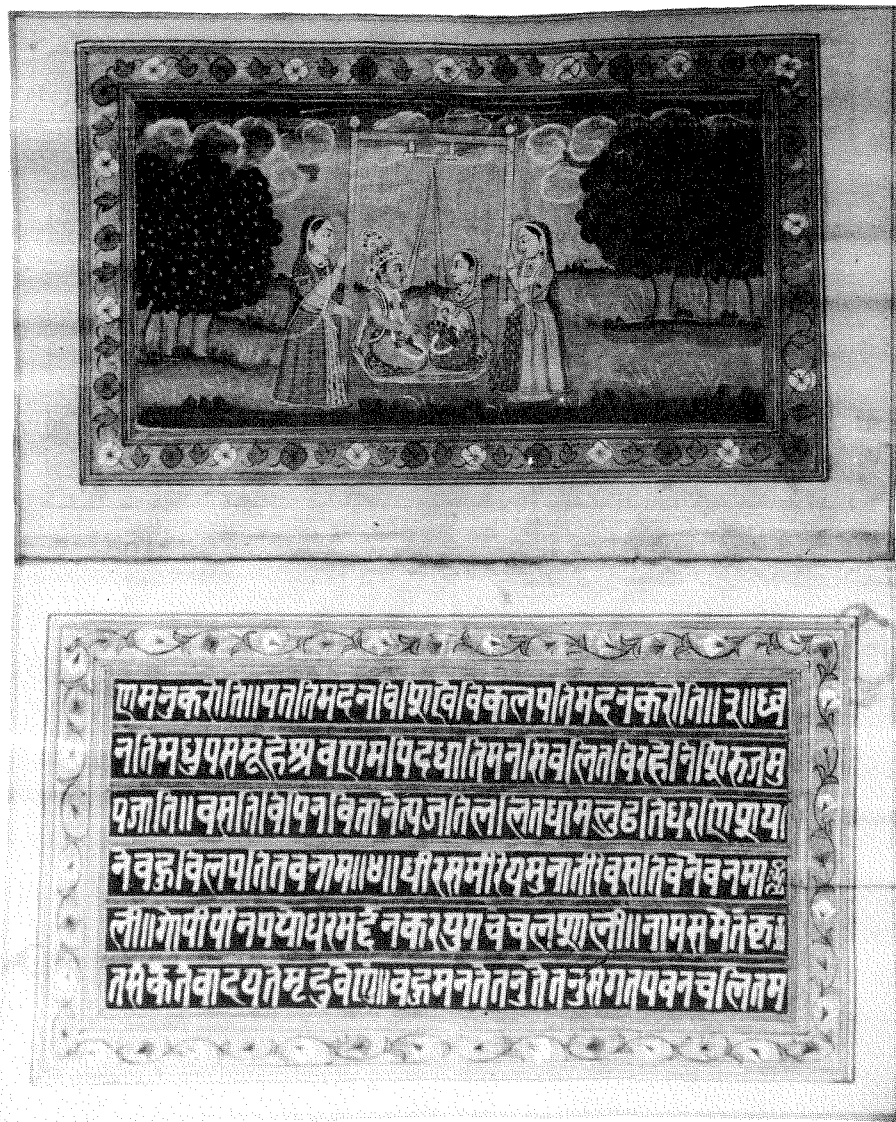 णमनुकरोति॥पततिमदनविशिखेविकलपतिमदनकरोति॥३॥ध्व
नतिमधुपसमूहेश्रवणमपिदधातिमनसिवलितविरहेनिशिरुजमु
पजाति॥वसतिविपिनवितानेत्यजतिललितधामलुठतिधरणिशय
नेवहुविलपतितवनाम॥४॥धीरसमीरेयमुनातीरेवसतिवनेवनमा
ली॥गोपीपीनपयोधरमर्द्दनकरयुगचंचलशाली॥नामसमेतंकृ
तसंकेतंवादयतेमृदुवेणुं॥वहुमनुतेतनुतेतनुसंगतपवनचलितम